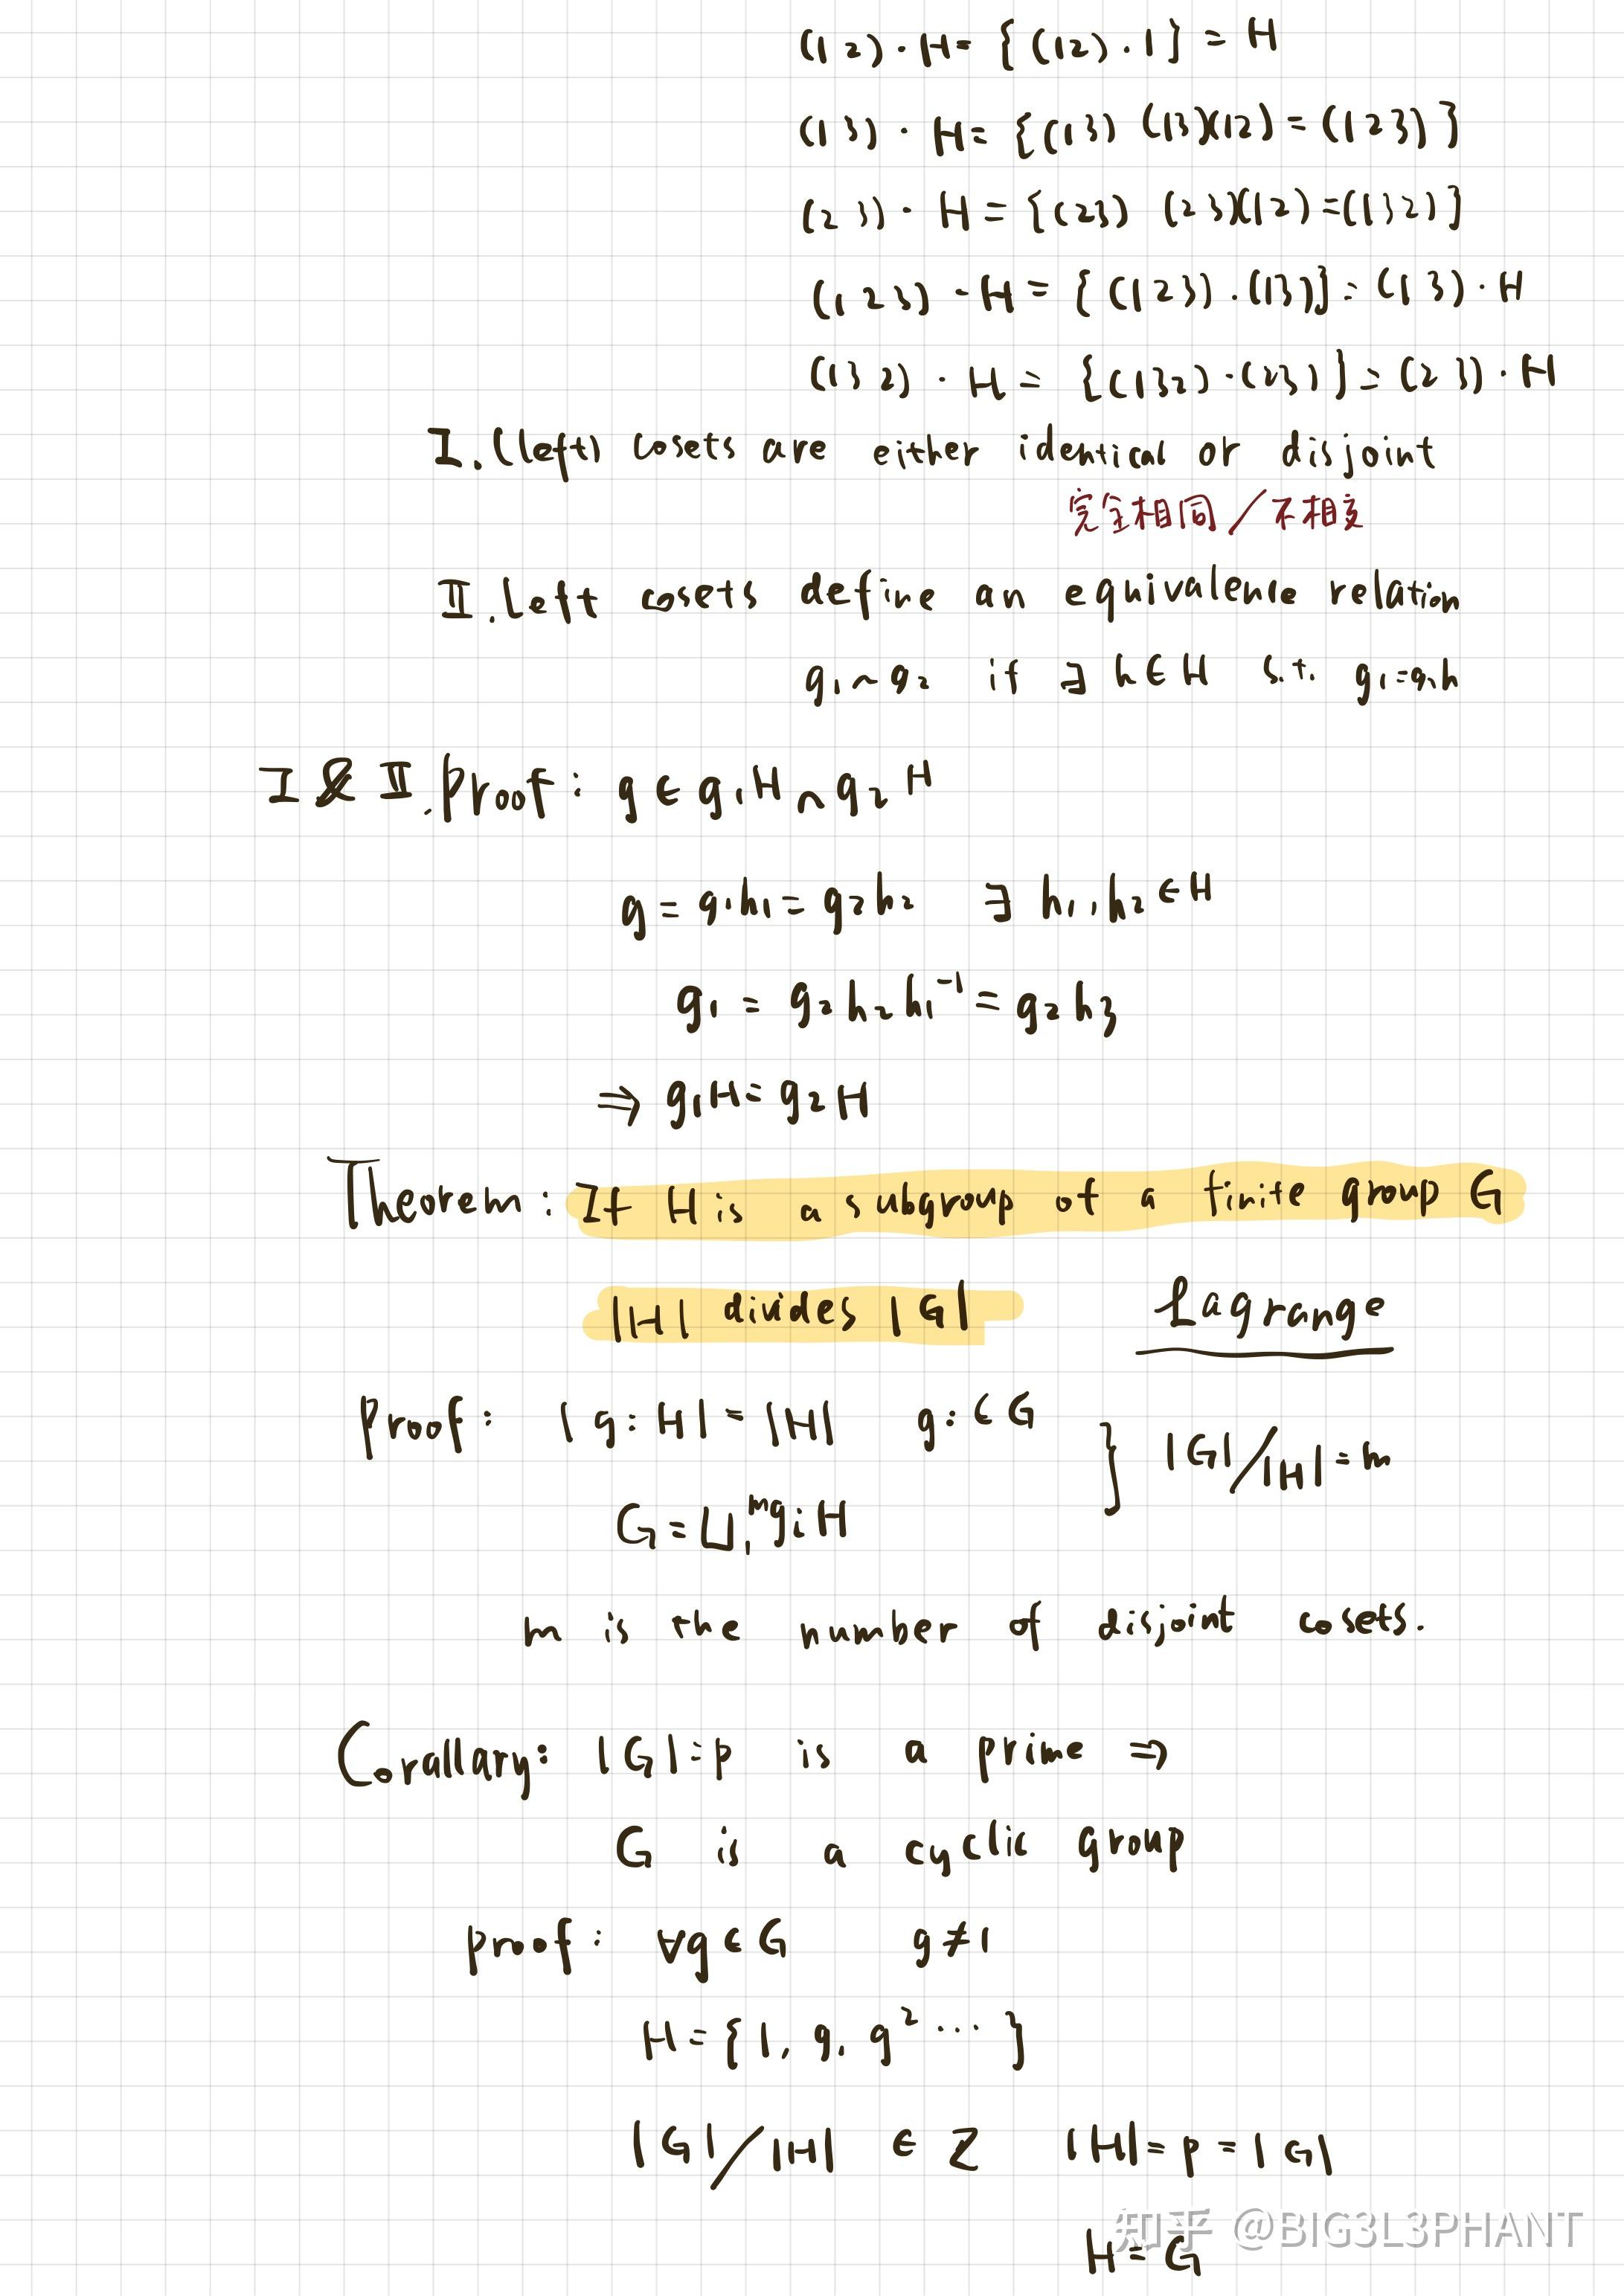 (12)·H={(12)·1}=H
(13)·H={(13) (13)(12)=(123)}
(23)·H={(23) (23)(12)=(132)}
(123)·H={(123)·(13)}=(13)·H
(132)·H={(132)·(23)}=(23)·H
I.(left) cosets are either identical or disjoint
完全相同/不相交
II.Left cosets define an equivalence relation
g₁~g₂ if ∃ h∈H s.t. g₁=g₂h
I & II.Proof: g∈g₁H∩g₂H
g=g₁h₁=g₂h₂ ∃h₁,h₂∈H
g₁=g₂h₂h₁⁻¹=g₂h₃
⇒g₁H=g₂H
Theorem: If H is a subgroup of a finite group G
|H| divides |G| Lagrange
Proof: |gᵢH|=|H| gᵢ∈G } |G|/|H|=m
G=⊔₁ᵐgᵢH
m is the number of disjoint cosets.
Corallary: |G|=p is a prime ⇒
G is a cyclic group
proof: ∀g∈G g≠1
H={1, g, g²···}
|G|/|H| ∈ Z |H|=p=|G|
H=G
知乎 @BIG3L3PHANT